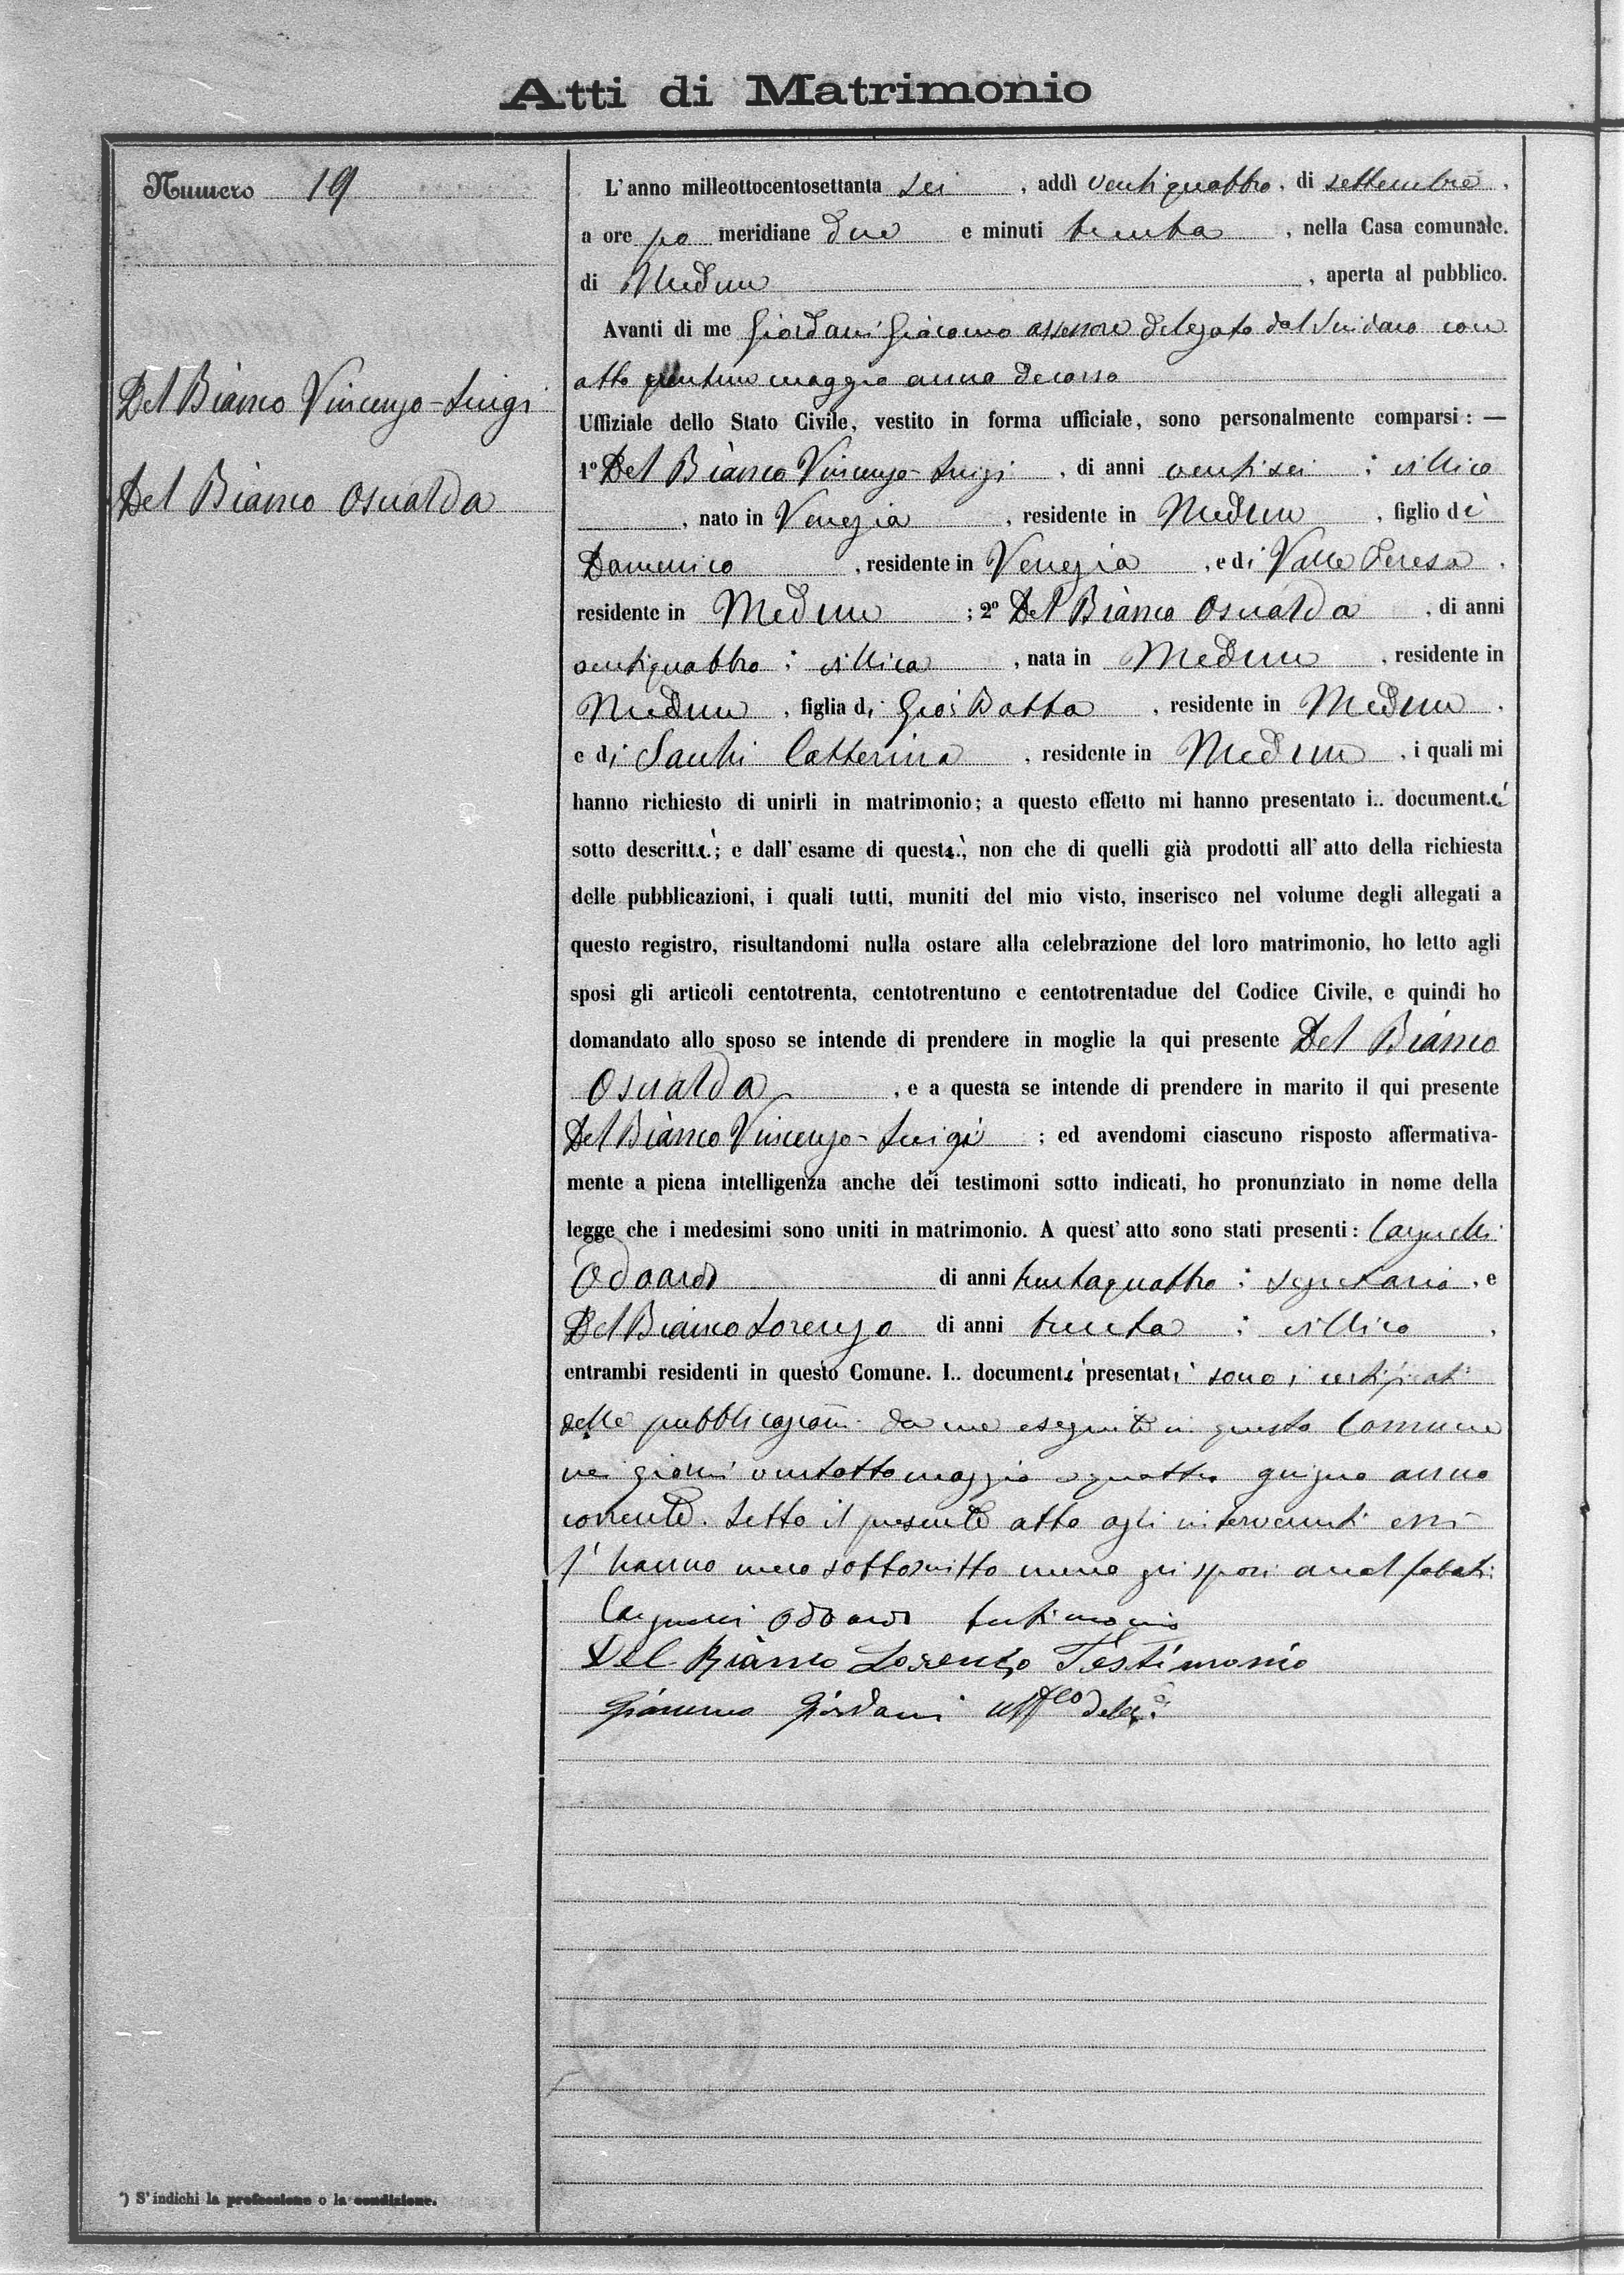 Atti di Matrimonio
Numero 19
Del Bianco Vincenzo-Luigi
Del Bianco Osualda
L'anno milleottocentosettanta sei, addì ventiquattro, di settembre,
a ore po meridiane due e minuti trenta, nella Casa comunale.
di Medun, aperta al pubblico.
Avanti di me Giordani Giacomo assessore delegato dal Sindaco con
atto maggio anno decorso
Uffiziale dello Stato Civile, vestito in forma ufficiale, sono personalmente comparsi: —
1º Del Bianco Vincenzo-Luigi, di anni ventisei; villico
, nato in Venezia, residente in Medun, figlio di
Domenico, residente in Venezia, e di Valle Teresa,
residente in Medun; 2º Del Bianco Osualda, di anni
ventiquattro; villica, nata in Medun, residente in
Medun, figlia di Gio: Batta, residente in Medun,
e di Catterina, residente in Medun, i quali mi
hanno richiesto di unirli in matrimonio; a questo effetto mi hanno presentato i.. documenti
sotto descritti; e dall'esame di questi, non che di quelli già prodotti all'atto della richiesta
delle pubblicazioni, i quali tutti, muniti del mio visto, inserisco nel volume degli allegati a
questo registro, risultandomi nulla ostare alla celebrazione del loro matrimonio, ho letto agli
sposi gli articoli centotrenta, centotrentuno e centotrentadue del Codice Civile, e quindi ho
domandato allo sposo se intende di prendere in moglie la qui presente Del Bianco
Osualda, e a questa se intende di prendere in marito il qui presente
Del Bianco Vincenzo-Luigi; ed avendomi ciascuno risposto affermativa-
mente a piena intelligenza anche dei testimoni sotto indicati, ho pronunziato in nome della
legge che i medesimi sono uniti in matrimonio. A quest'atto sono stati presenti:
Odoardo di anni trentaquattro; segretario, e
Del Bianco Lorenzo di anni trenta; villico,
entrambi residenti in questo Comune. I.. documenti presentati sono i certificati
delle pubblicazioni da me eseguite in questo Comune
nei giorni ventotto maggio e quattro giugno anno
corrente. Letto il presente atto agli intervenuti essi
l'hanno meco sottoscritto meno gli sposi analfabeti.
Odoardo testimonio
Del Bianco Lorenzo Testimonio
Giacomo Giordani Uff.le deleg.o
*) S'indichi la professione o la condizione.